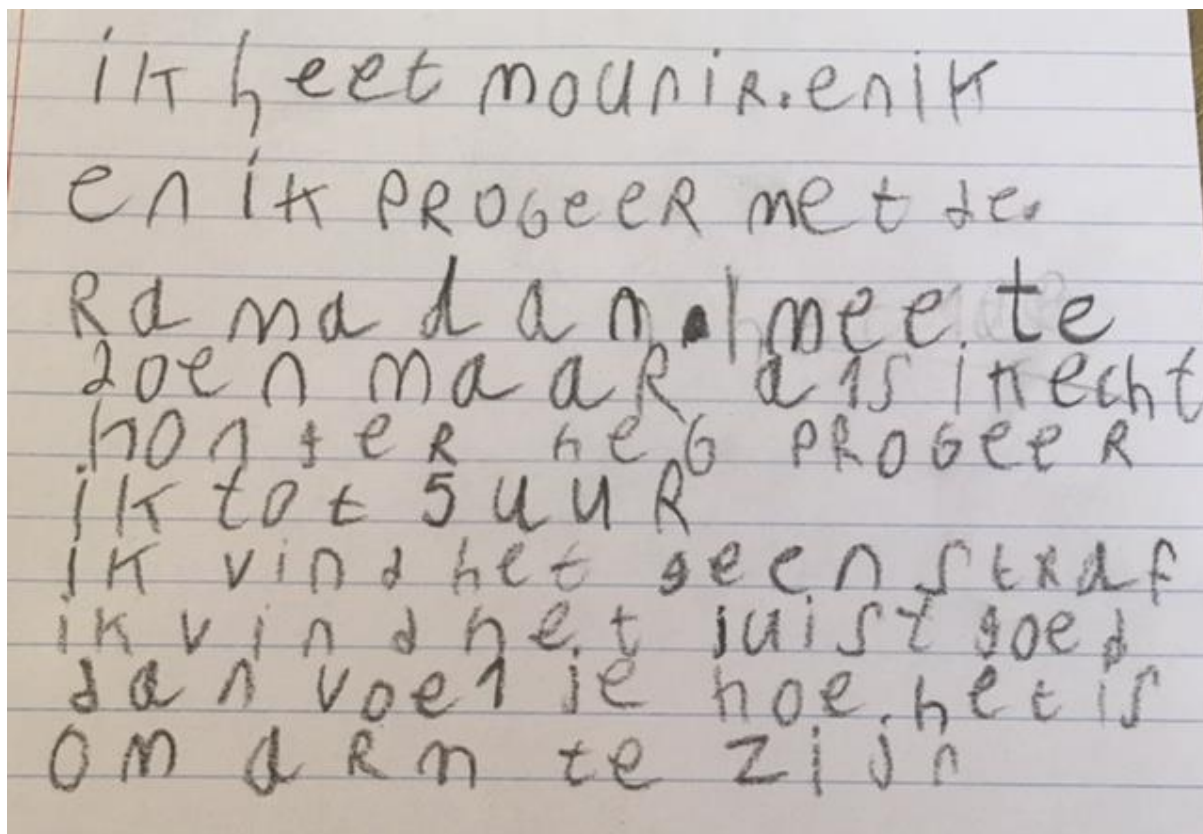 ik heet mounir. en ik
en ik progeer met de.
Ramadan. mee te
doen maar als ik echt
honger heb progeer
ik tot 5 uur
ik vind het geen straf
ik vind het juist goed
dan voel je hoe het is
om arm te zijn